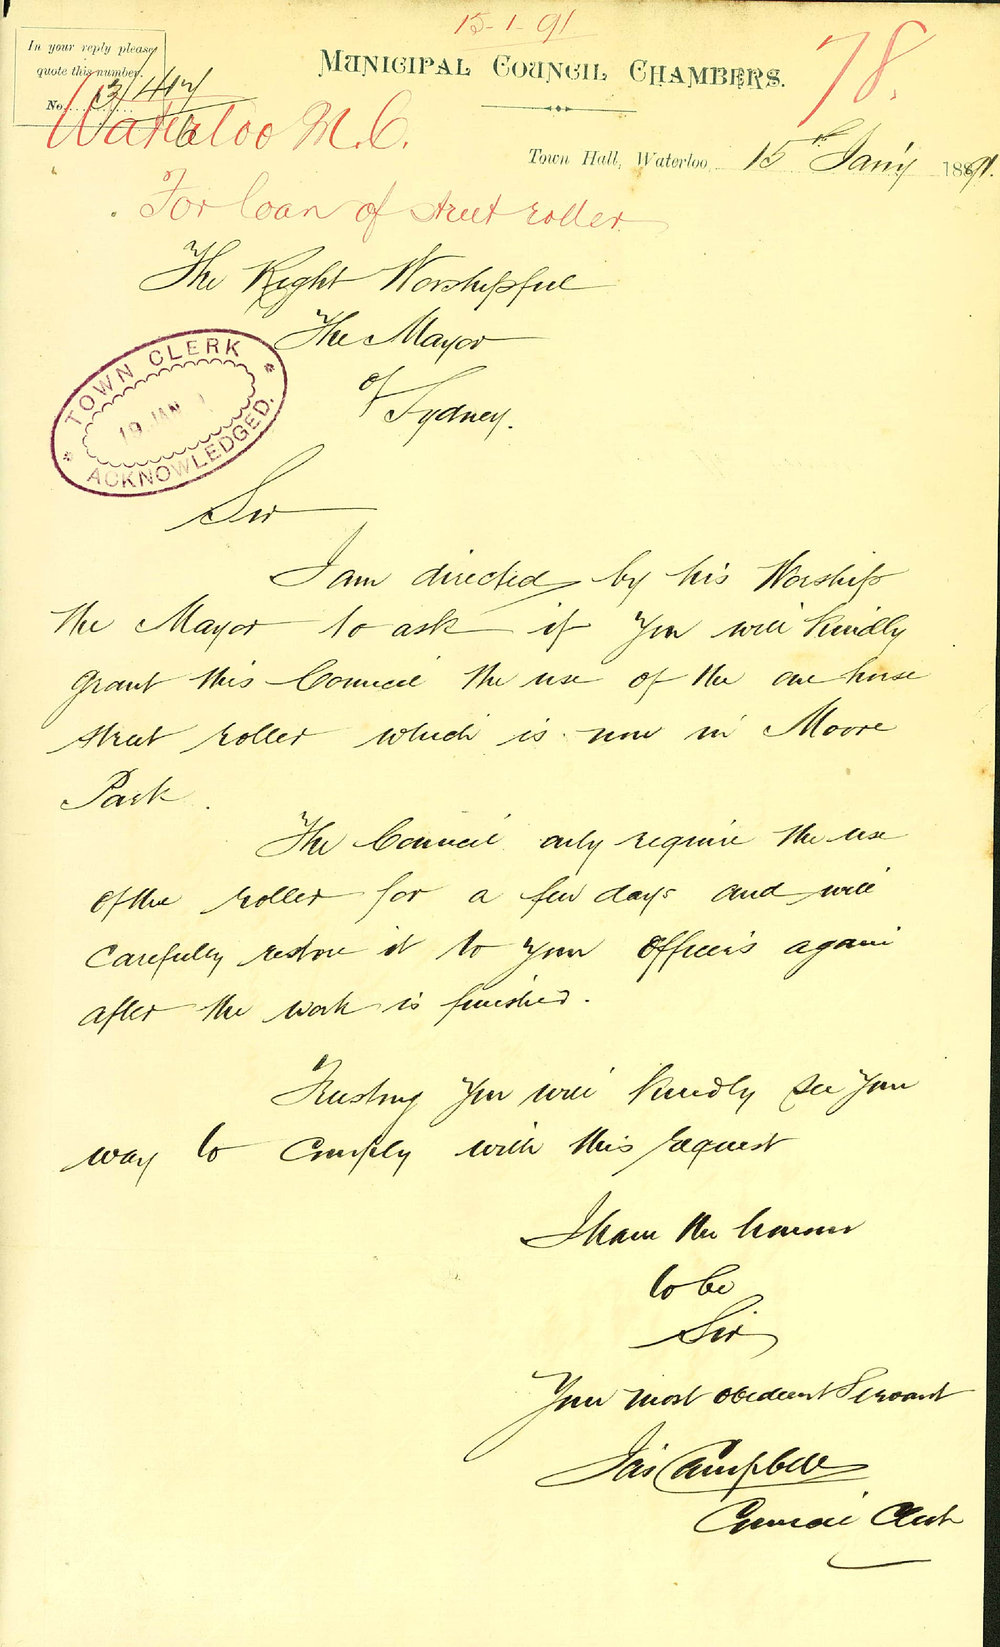 15-1-91
In your reply please
quote this number.
No. 3/447
6
MUNICIPAL COUNCIL CHAMBERS.
78.
Waterloo M.C.
Town Hall, Waterloo, 15th Jany 1891.
For loan of street roller
The Right Worshipful
The Mayor
of
Sydney.
TOWN CLERK
19 JAN 1
ACKNOWLEDGED.
Sir
I am directed by his Worship
the Mayor to ask if you will kindly
grant this Council the use of the one horse
street roller which is now in Moore
Park.
The Council only require the use
of the roller for a few days and will
carefully restore it to your officers again
after the work is finished.
Trusting you will kindly see your
way to comply with this request
I have the honour
to be
Sir
Your most obedient Servant
Jas Campbell
Council Clerk